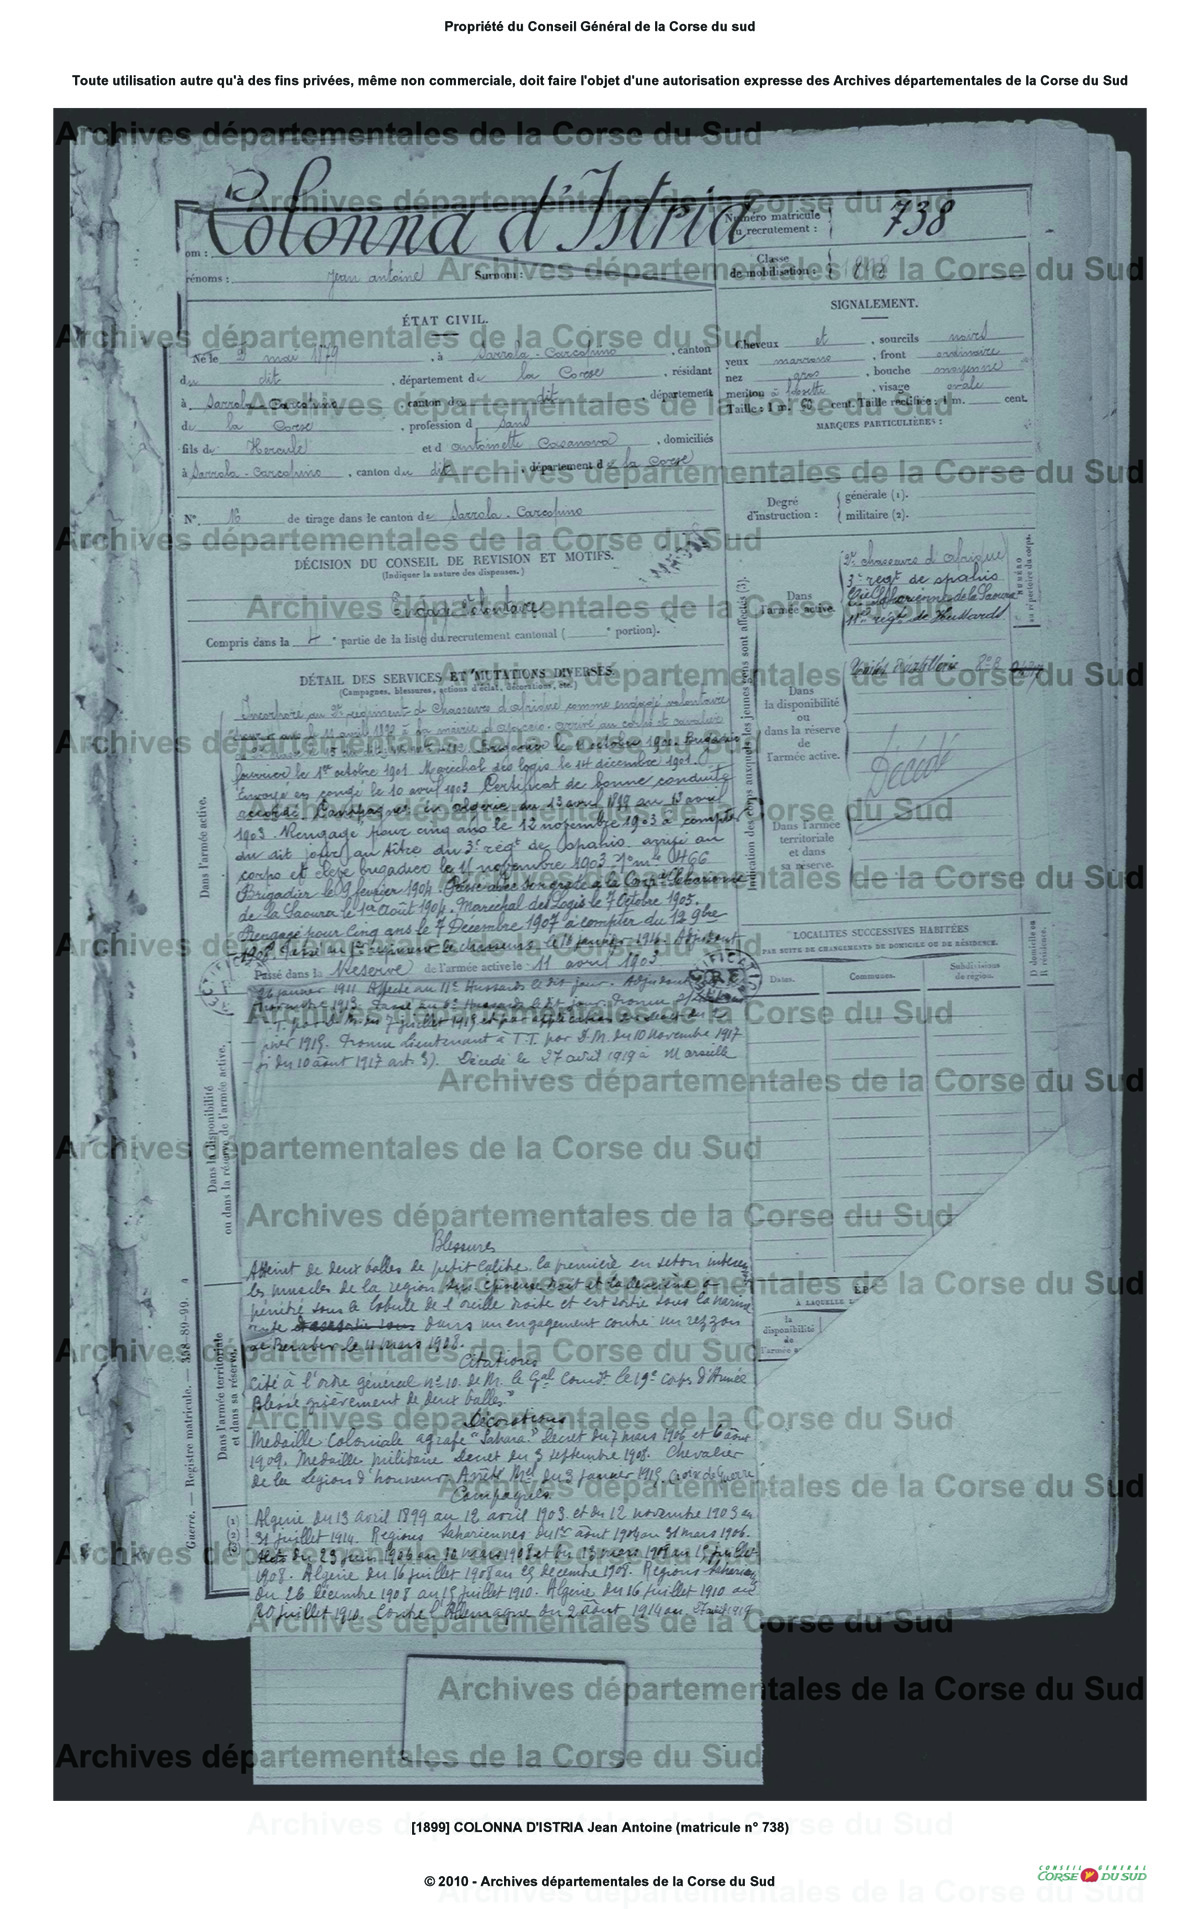 Propriété du Conseil Général de la Corse du sud
Toute utilisation autre qu'à des fins privées, même non commerciale, doit faire l'objet d'une autorisation expresse des Archives départementales de la Corse du Sud
Archives départementales de la Corse du Sud
Colonna d'Istria
Numéro matricule du recrutement : 738
Prénoms : Jean Antoine Surnom :
Classe de mobilisation : 1898
ÉTAT CIVIL.
Né le mai 1879, à Sarrola-Carcopino, canton
du dit, département de la Corse, résidant
à Sarrola-Carcopino, canton du dit, département
de la Corse, profession d sans
fils de Hercule et d Antoinette Casanova, domiciliés
à Sarrola-Carcopino, canton du dit, département de la Corse
N° 16 de tirage dans le canton de Sarrola-Carcopino
SIGNALEMENT.
Cheveux et, sourcils noirs
yeux marrons, front ordinaire
nez gros, bouche moyenne
menton à fossette, visage ovale
Taille : 1 m. cent. Taille rectifiée : 1 m. cent.
MARQUES PARTICULIÈRES :
Degré d'instruction : générale (1).
militaire (2).
DÉCISION DU CONSEIL DE REVISION ET MOTIFS.
(Indiquer la nature des dispenses.)
Engagé volontaire
Compris dans la 4e partie de la liste du recrutement cantonal ( portion).
Indication des corps auxquels les jeunes gens sont affectés (3).
NUMÉRO au répertoire du corps.
Dans l'armée active.
2e chasseurs d'Afrique
3e régt de spahis
Cie Saharienne de la Saoura
11e régt de Hussards
Dans la disponibilité ou dans la réserve de l'armée active.
Décédé
Dans l'armée territoriale et dans sa réserve.
DÉTAIL DES SERVICES ET MUTATIONS DIVERSES.
(Campagnes, blessures, actions d'éclat, décorations, etc.)
Dans l'armée active.
Incorporé au 2e régiment de Chasseurs d'Afrique comme engagé volontaire
pour 4 ans le 11 avril 1899 à la mairie d'Ajaccio. Arrivé au corps et cavalier
Brigadier le octobre 1900. Brigadier
fourrier le 1er octobre 1901. Maréchal des logis le 14 décembre 1901.
Envoyé en congé le 10 avril 1903. Certificat de bonne conduite
accordé. Campagnes : en Algérie du 13 avril 1899 au 13 avril
1903. Rengagé pour cinq ans le 12 novembre 1903 à compter
du dit jour au titre du 3e régt de spahis. arrivé au
corps et élève brigadier le novembre 1903 nº mle 466
Brigadier le 9 février 1904. Passé avec son grade à la Comp. Saharienne
de la Saoura le 1er Août 1904. Maréchal des Logis le 7 Octobre 1905.
Rengagé pour Cinq ans le 7 Décembre 1907 à compter du 12 9bre
1908. Passé au 1er régiment de chasseurs le février
Passé dans la Réserve de l'armée active le 11 avril 1903
26 janvier 1911 Affecté au 11e Hussards le dit jour. Adjudant
novembre 1913. Passé au Hussards le dit jour. Promu
T.T. par D.M. du 7 juillet 1915 et par application
Promu Lieutenant à T.T. par D.M. du 10 Novembre 1917
du 10 août 1917 art. 3). Décédé le 27 avril 1919 à Marseille
Dans la disponibilité ou dans la réserve de l'armée active.
LOCALITÉS SUCCESSIVES HABITÉES
PAR SUITE DE CHANGEMENTS DE DOMICILE OU DE RÉSIDENCE.
Dates. Communes. Subdivisions de région. D domicile ou R résidence.
À LAQUELLE
la disponibilité
Blessures
Atteint de deux balles de petit calibre. la première en séton
les muscles de la région et la deuxième a
pénétré sous le lobule de l'oreille droite et est sortie sous la narine
droite dans un engagement contre un rezzou
de Beraber le 11 mars 1908.
Citations
Cité à l'ordre général nº 10. de M. le Gal Comdt le 19e Corps d'Armée
Blessé grièvement de deux balles"
Décorations
Médaille Coloniale agrafe "Sahara" Décret du 7 mars 1906 et 6 août
1909. Médaille militaire Décret du 3 septembre 1908. Chevalier
de la Légion d'honneur Arrêté Mel du 3 janvier 1919. Croix de Guerre
Campagnes.
Algérie du 13 avril 1899 au 12 avril 1903. et du 12 novembre 1903 au
31 juillet 1904. Régions Sahariennes du 1er août 1904 au 31 mars 1906.
du 23 juin 1906 au 10 mars 1908 et du 13 mars 1908 au 15 juillet
1908. Algérie du 16 juillet 1908 au 25 décembre 1908. Régions Sahariennes
du 26 décembre 1908 au 15 juillet 1910. Algérie du 16 juillet 1910 au
20 juillet 1910. Contre l'Allemagne du 2 août 1914 au 27 avril 1919
Dans l'armée territoriale et dans sa réserve.
Guerre. — Registre matricule. — 358-89-99.
[1899] COLONNA D'ISTRIA Jean Antoine (matricule n° 738)
© 2010 - Archives départementales de la Corse du Sud
CONSEIL GENERAL
CORSE DU SUD